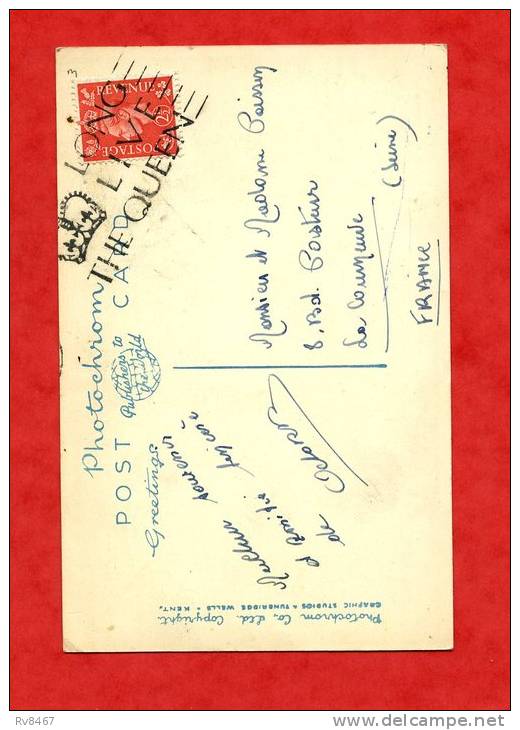 REVENUE
POSTAGE
LONG
LIVE
THE QUEEN
Photochrom
POST CARD
Publishers to
the World
Greetings.
Meilleur souvenir
et
de
Monsieur et Madame Poisson
8, Bd. Pasteur
La Courneuve
(Seine)
FRANCE
Photochrom Co., Ltd. Copyright.
GRAPHIC STUDIOS • TUNBRIDGE WELLS • KENT.
Rv8467
delcampe.net